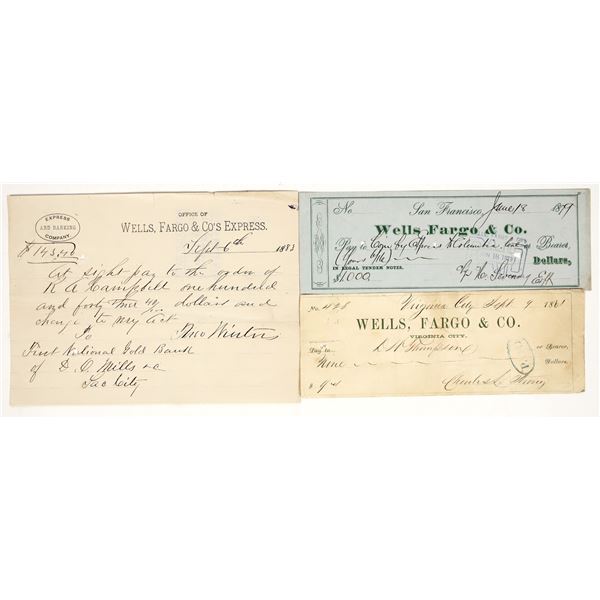 EXPRESS
AND BANKING
COMPANY
OFFICE OF
WELLS, FARGO & CO'S EXPRESS.
Sept 6th 1883
$143,40
At sight pay to the order of
R A Campbell one hundred
and forty three dollars and
charge to my acct
To Theo Winters
First National Gold Bank
of D. O. Mills & Co
Sac City
No. San Francisco, June 18 1879
Wells Fargo & Co.
Pay to or Bearer,
Dollars,
IN LEGAL TENDER NOTES.
$1000
No. 428 Virginia City Sept. 9 186
WELLS, FARGO & CO.
VIRGINIA CITY.
Pay to Thompson or Bearer,
Nine Dollars.
$9
Charles L.